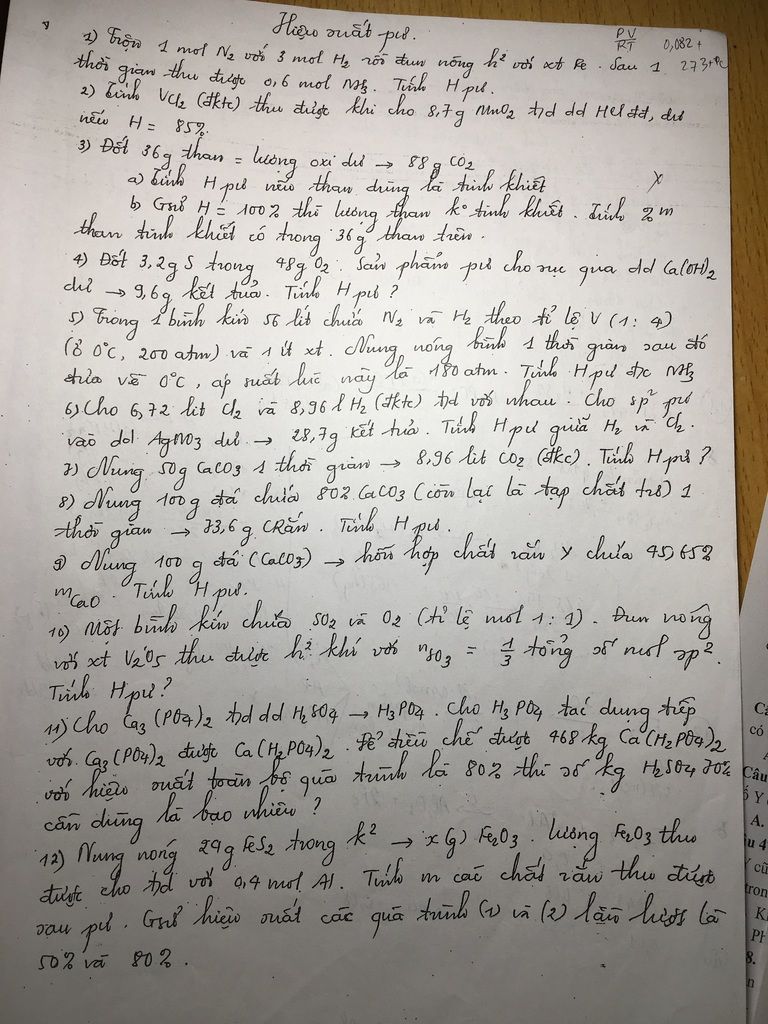 Hiệu suất pư.
PV
RT
0,082 +
273+t°C
1) Trộn 1 mol N2 với 3 mol H2 rồi đun nóng h² với xt Fe. Sau 1
thời gian thu được 0,6 mol NH3. Tính H pư.
2) Tính VCl2 (đktc) thu được khi cho 8,7g MnO2 t/d dd HCl đđ, dư
nếu H = 85%.
3) Đốt 36g than = lượng oxi dư → 88g CO2
a) Tính H pư nếu than dùng là tinh khiết
X
b) Gsử H = 100% thì lượng than k° tinh khiết. Tính % m
than tinh khiết có trong 36g than trên.
4) Đốt 3,2g S trong 48g O2. Sản phẩm pư cho sục qua dd Ca(OH)2
dư → 9,6g kết tủa. Tính H pư?
5) Trong 1 bình kín 56 lít chứa N2 và H2 theo tỉ lệ V (1: 4)
(ở 0°C, 200 atm) và 1 ít xt. Nung nóng bình 1 thời gian sau đó
đưa về 0°C, áp suất lúc này là 180 atm. Tính H pư đ/c NH3
6) Cho 6,72 lít Cl2 và 8,96 l H2 (đktc) t/d với nhau. Cho sp² pư
vào dd AgNO3 dư → 28,7g kết tủa. Tính H pư giữa H2 và Cl2.
7) Nung 50g CaCO3 1 thời gian → 8,96 lít CO2 (đkc). Tính H pư?
8) Nung 100g đá chứa 80% CaCO3 (còn lại là tạp chất trơ) 1
thời gian → 73,6g CRắn. Tính H pư.
9) Nung 100g đá (CaCO3) → hỗn hợp chất rắn Y chứa 45,65%
mCaO. Tính H pư.
10) Một bình kín chứa SO2 và O2 (tỉ lệ mol 1:1). Đun nóng
với xt V2O5 thu được h² khí với nSO3 = 1/3 tổng số mol sp².
Tính H pư?
11) Cho Ca3(PO4)2 t/d dd H2SO4 → H3PO4. Cho H3PO4 tác dụng tiếp
với Ca3(PO4)2 được Ca(H2PO4)2. Để điều chế được 468 kg Ca(H2PO4)2
với hiệu suất toàn bộ quá trình là 80% thì số kg H2SO4 70%
cần dùng là bao nhiêu?
12) Nung nóng 24g FeS2 trong k² → x(g) Fe2O3. Lượng Fe2O3 thu
được cho t/d với 0,4 mol Al. Tính m các chất rắn thu được
sau pư. Gsử hiệu suất các quá trình (1) và (2) lần lượt là
50% và 80%.
có
Câu
A.